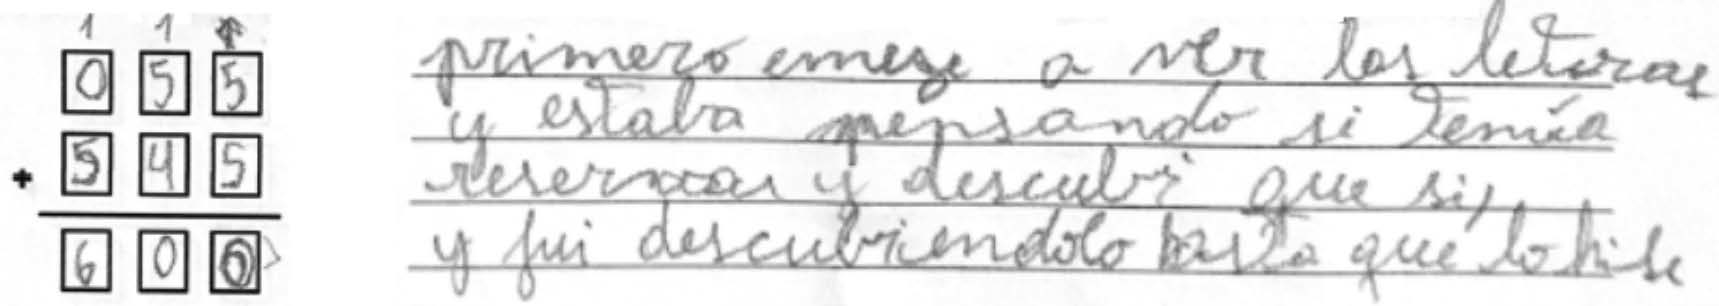 1 1
0 5 5
+ 5 4 5
6 0 0
primero emeze a ver las leturas
y estaba pensando si tenía
reservas y descubri que si,
y fui descubriendolo hasta que lo hise